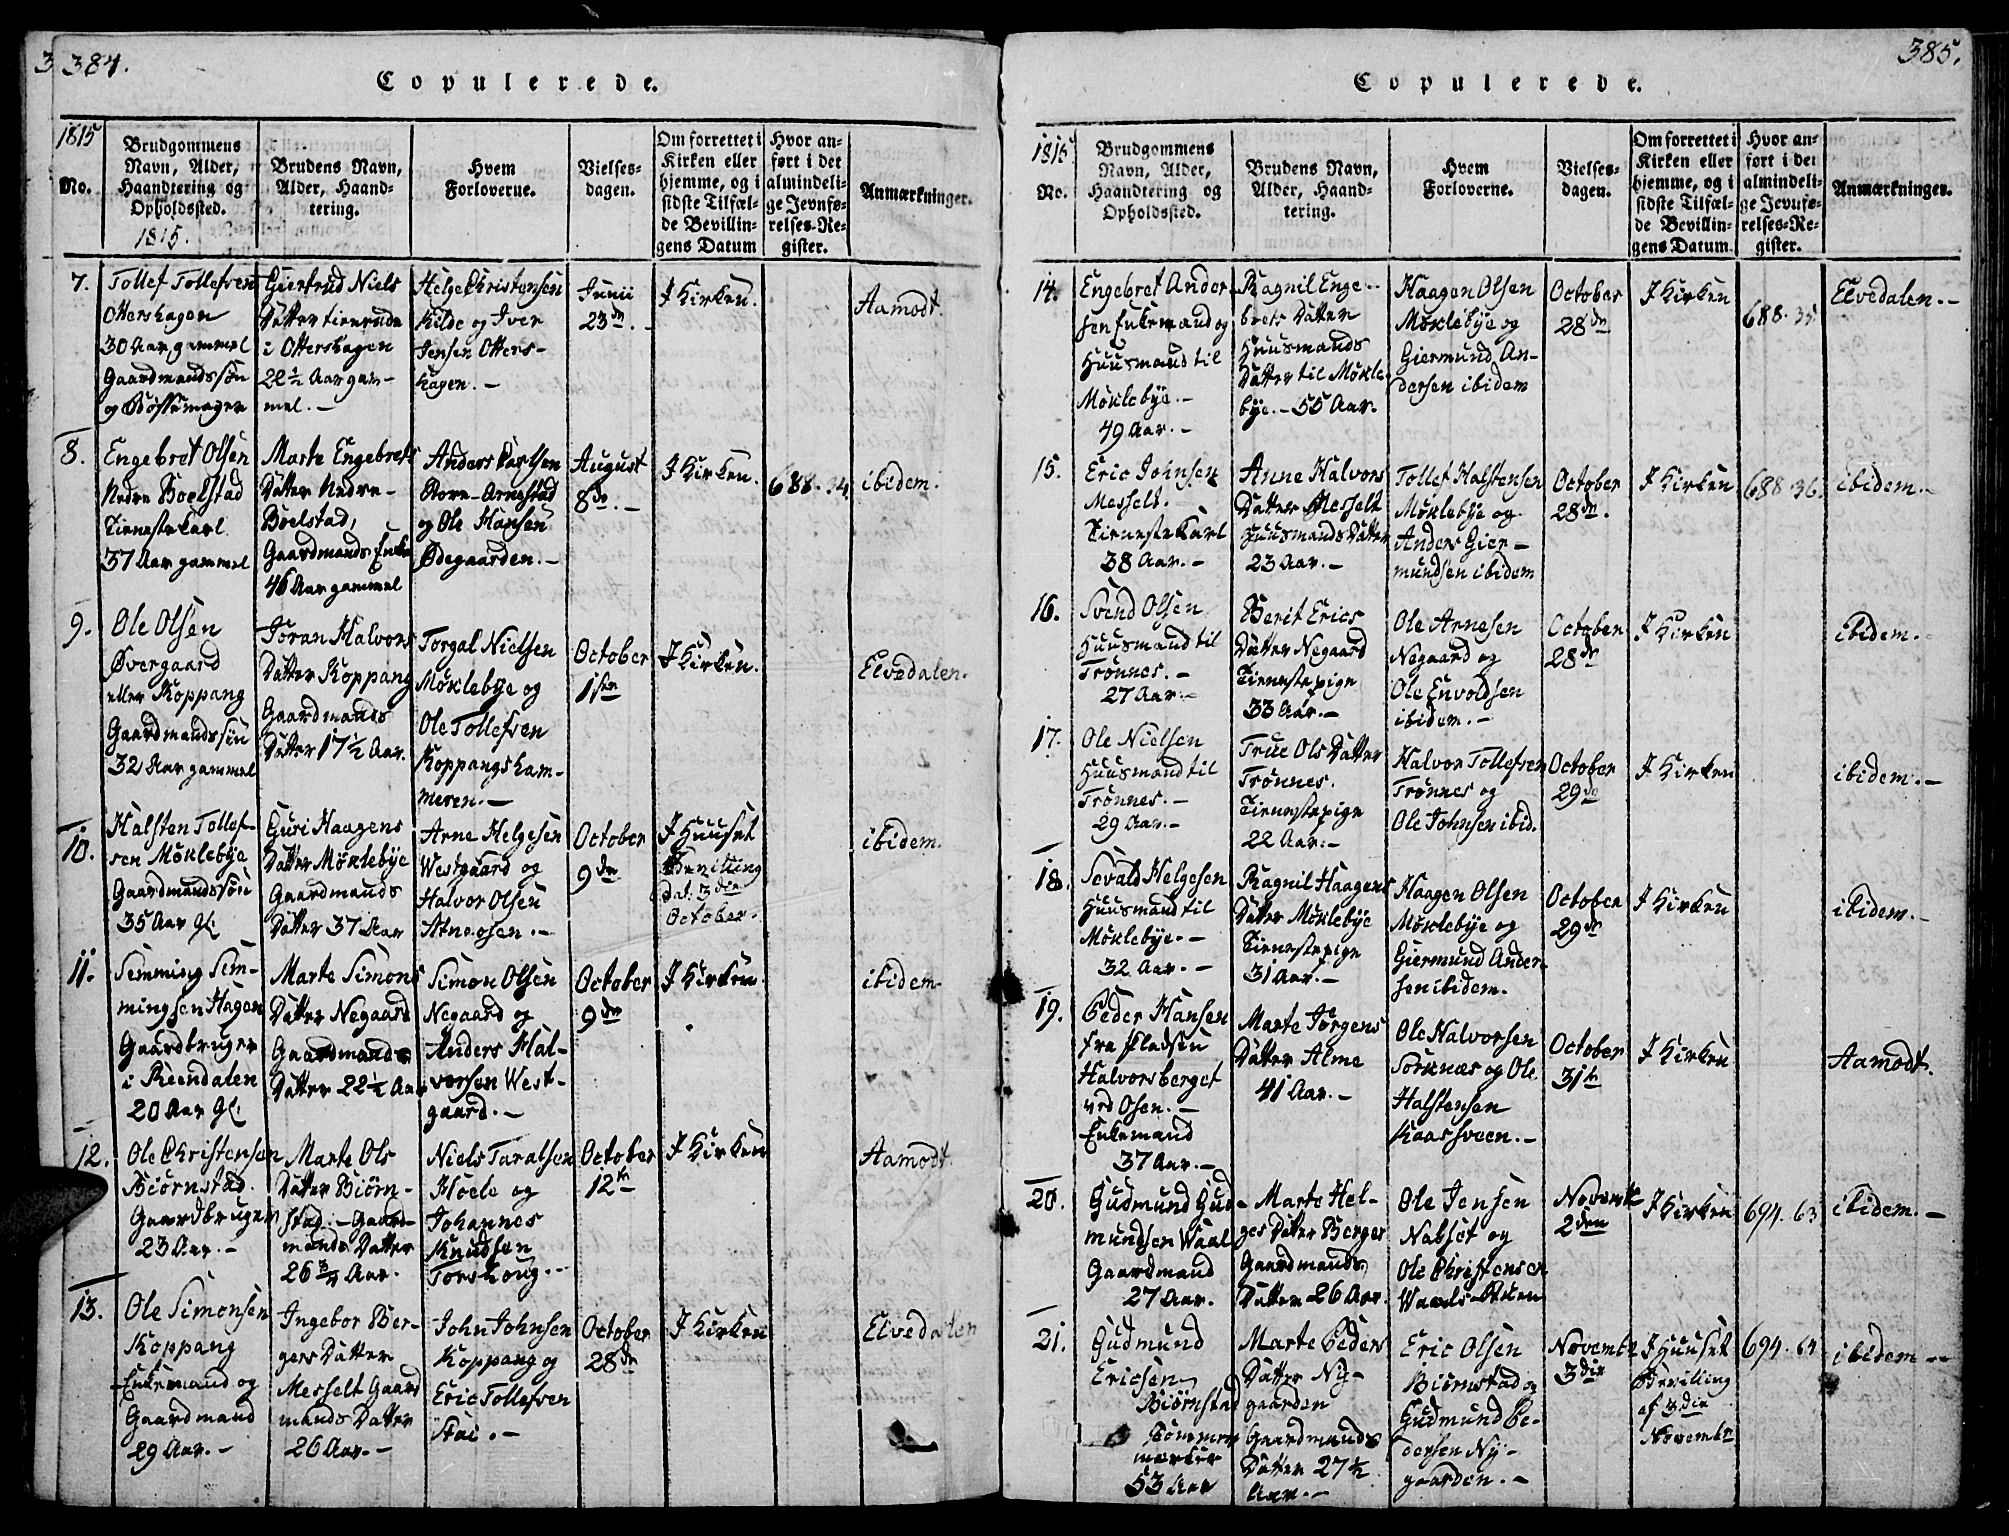 384.
Copulerede.
1815
No.
Brudgommens
Navn, Alder,
Haandtering og
Opholdssted.
1815.
Brudens Navn,
Alder, Haand-
tering.
Hvem
Forloverne.
Vielses-
dagen.
Om forrettet i
Kirken eller
hjemme, og i
sidste Tilfæl-
de Bevillin-
gens Datum
Hvor an-
ført i det
almindeli-
ge Jevnfø-
relses-Re-
gister.
Anmærkninger.
7.
Tollef Tollefsen
Ottershagen
30 Aar gammel
Gaardmandssøn
og Bøssemager
Giertrud Niels
Datter tienende
i Ottershagen
22½ Aar gam-
mel.-
Helge Christensen
Kilde og Iver
Jensen Otters-
hagen.-
Junii
23de.
I Kirken.
Aamodt.
8.
Engebret Olsen
Nedre Boelstad
Tienestekarl
37 Aar gammel
Marte Engebrets
Datter Nedre-
Boelstad,
Gaardmands Enke
46 Aar gammel
Anders Carlsen
Store-Arnestad
og Ole Hansen
Ødegaarden.-
August
8de.-
I Kirken.
688.34
ibidem.
9.
Ole Olsen
Øvergaard
eller Koppang
Gaardmandssøn
32 Aar gammel
Joran Halvors
Datter Koppang
Gaardmands
Datter 17½ Aar.
Torgal Nielsen
Møklebye og
Ole Tollefsen
Koppangskam-
meren.-
October
1ste
I Kirken.
Elvedalen.
10.
Halsten Tollef-
sen Møklebye
Gaardmandssøn
35 Aar gl.
Guri Haagens
Datter Møklebye
Gaardmands
Datter 37 Aar
Arne Helgesen
Westgaard og
Halvor Olsen
Atneosen.-
October
9de
I Huuset
Bevilling
dat. 3die
October.
ibidem.
11.
Semming Sem-
mingsen Hagen
Gaardbruger
i Reendalen
20 Aar gl.
Marte Simons
Datter Negaard
Gaardmands
Datter 22½ Aar
Simon Olsen
Negaard og
Anders Hal-
vorsen West-
gaard.-
October
9de
I Kirken.
ibidem.
12.
Ole Christensen
Biørnstad
Gaardbruger
23 Aar.-
Marte Ols
Datter Biørn-
stad.-Gaard-
mands Datter
26¾ Aar.
Niels Taralsen
Hoele og
Johannes
Knudsen
Torskoug.-
October
12te
I Kirken
Aamodt.
13.
Ole Simonsen
Koppang
Enkemand og
Gaardmand
29 Aar.-
Ingebor Ber-
gers Datter
Messelt Gaard
mands Datter
26 Aar.-
John Johnsen
Koppang og
Eric Tollefsen
Stai.-
October
28de
I Kirken
Elvedalen
385.
Copulerede.
1815
No.
Brudgommens
Navn, Alder,
Haandtering og
Opholdssted.
Brudens Navn,
Alder, Haand-
tering.
Hvem
Forloverne.
Vielses-
dagen.
Om forrettet i
Kirken eller
hjemme, og i
sidste Tilfæl-
de Bevillin-
gens Datum.
Hvor an-
ført i det
almindeli-
ge Jevnfø-
relses-Re-
gister.
Anmærkninger.
14.
Engebret Ander-
sen Enkemand og
Huusmand til
Møklebye.-
49 Aar.-
Ragnil Enge-
brets Datter
Huusmands
Datter til Møkle-
bye.- 55 Aar.
Haagen Olsen
Møklebye og
Giermund An-
dersen ibidem
October
28de
I Kirken
688.35
Elvedalen.-
15.
Eric Johnsen
Messelt.-
Tienestekarl
38 Aar.-
Anne Halvors
Datter Messelt
Huusmands Datter
23 Aar.-
Tollef Halstensen
Møklebye og
Anders Gier-
mundsen ibidem
October
28de.
I Kirken
688.36.
ibidem.-
16.
Svend Olsen
Huusmand til
Trønnes.-
27 Aar.-
Berit Erics
Datter Negaard
Tienestepige
33 Aar.-
Ole Arnesen
Negaard og
Ole Envoldsen
ibidem.-
October
28de
I Kirken
ibidem.-
17.
Ole Nielsen
Huusmand til
Trønnes.-
29 Aar.-
True Ols Datter
Trønnes.
Tienestepige
22 Aar.-
Halvor Tollefsen
Trønnes og
Ole Johnsen ibid.
October
29de
I Kirken
ibidem.-
18.
Sevald Helgesen
Huusmand til
Møklebye.-
32 Aar.-
Ragnil Haagens
Datter Møklebye
Tienestepige
31 Aar.-
Haagen Olsen
Møklebye og
Giermund Ander-
sen ibidem.
October
29de
I Kirken
ibidem.-
19.
Peder Hansen
fra Pladsen
Halvorsberget
ved Osen.-
Enkemand
37 Aar.-
Marte Jørgens
Datter Alme
41 Aar.-
Ole Halvorsen
Sorknæs og Ole
Halstensen
Kaassveen.-
October
31te
I Kirken
Aamodt.
20.
Gudmund Gud-
mundsen Waal
Gaardmand
27 Aar.
Marte Hel-
ges Datter Berger
Gaardmands
Datter 26 Aar.
Ole Jensen
Nabset og
Ole Christensen
Novembr
2den
I Kirken
694.63
ibidem.-
21.
Gudmund
Ericsen
Biørnstad
Tømmer
mærker
53 Aar
Marte Peders
Datter Ny-
gaarden
Gaardmands
Datter 27½
Aar.-
Eric Olsen
Biørnstad og
Gudmund Pe-
dersen Ny-
gaarden.-
Novembr
3die
I Huuset
Bevilling
af 3die
Novembr
694.64
ibidem.-